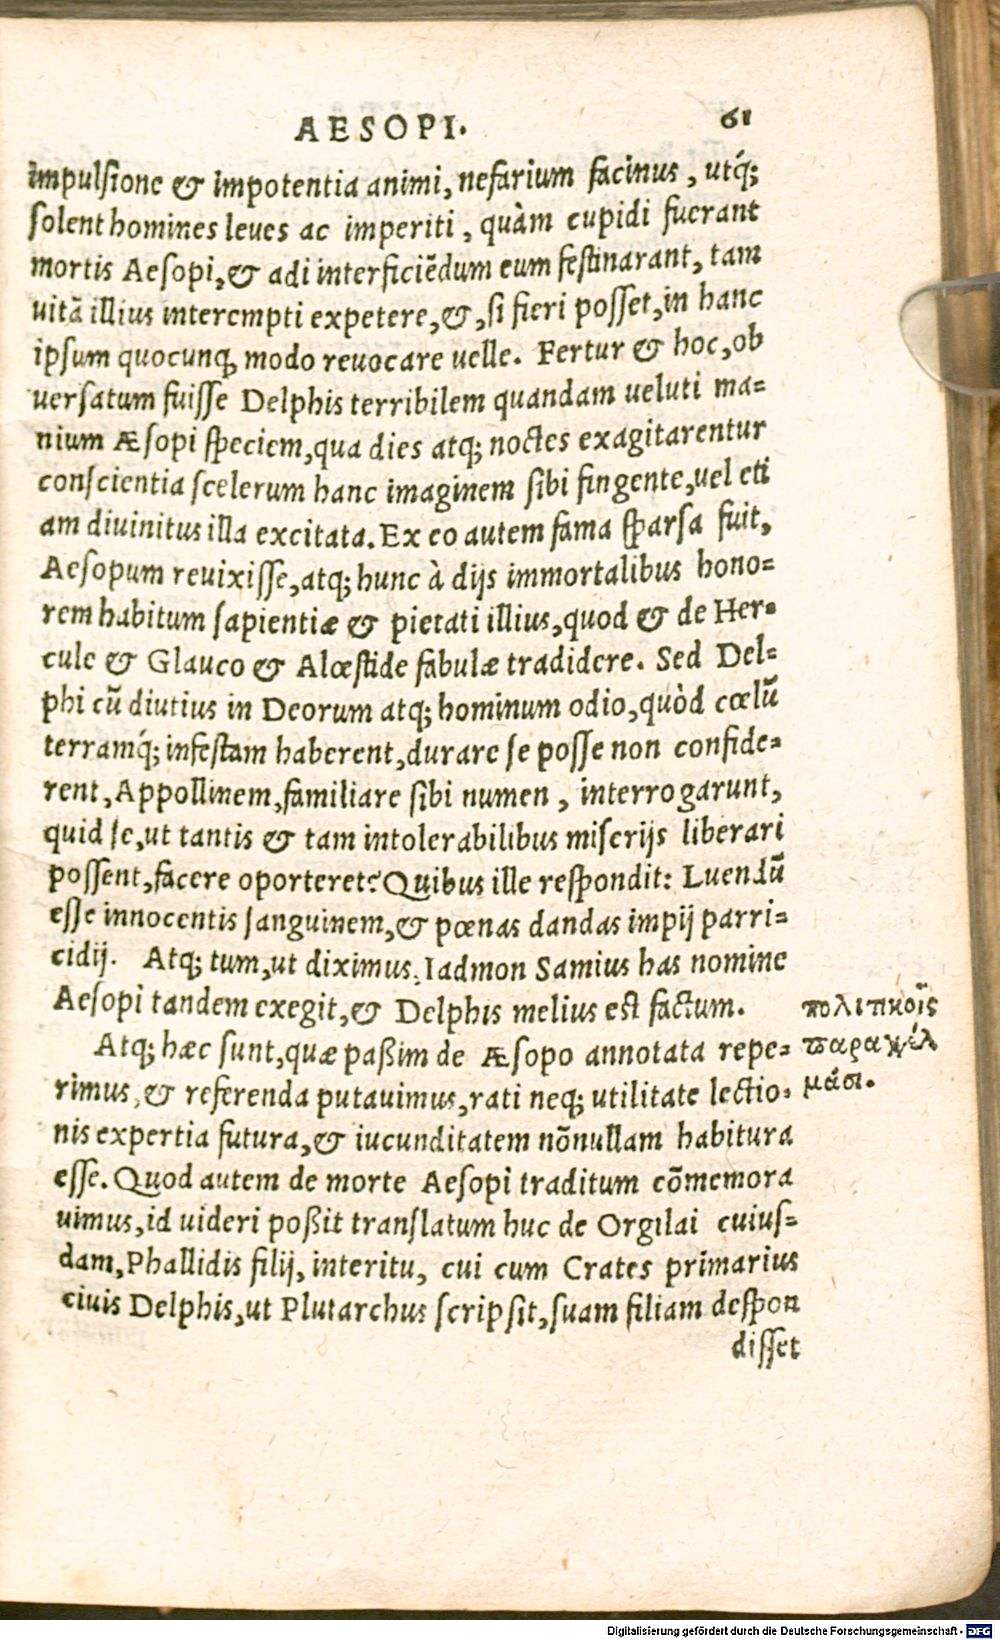 AESOPI. 61
impulsione & impotentia animi, nefarium facinus, utq́;
solent homines leues ac imperiti, quàm cupidi fuerant
mortis Aesopi, & adi interficiẽdum eum festinarant, tam
uitã illius interempti expetere, &, si fieri posset, in hanc
ipsum quocunq; modo reuocare uelle. Fertur & hoc, ob
uersatum fuisse Delphis terribilem quandam ueluti ma=
nium Æsopi speciem, qua dies atq; noctes exagitarentur
conscientia scelerum hanc imaginem sibi fingente, uel eti
am diuinitus illa excitata. Ex eo autem fama sparsa fuit,
Aesopum reuixisse, atq; hunc à dijs immortalibus hono=
rem habitum sapientiæ & pietati illius, quod & de Her=
cule & Glauco & Alœstide fabulæ tradidere. Sed Del=
phi cũ diutius in Deorum atq; hominum odio, quòd cœlũ
terramq́; infestam haberent, durare se posse non confide=
rent, Appollinem, familiare sibi numen, interrogarunt,
quid se, ut tantis & tam intolerabilibus miserijs liberari
possent, facere oporteret? Quibus ille respondit: Luendũ
esse innocentis sanguinem, & pœnas dandas impij parri=
cidij. Atq; tum, ut diximus, Iadmon Samius has nomine
Aesopi tandem exegit, & Delphis melius est factum.
Atq; hæc sunt, quæ paßim de Æsopo annotata repe=
rimus, & referenda putauimus, rati neq; utilitate lectio=
nis expertia futura, & iucunditatem nõnullam habitura
esse. Quod autem de morte Aesopi traditum cõmemora
uimus, id uideri poßit translatum huc de Orgilai cuius=
dam, Phallidis filij, interitu, cui cum Crates primarius
ciuis Delphis, ut Plutarchus scripsit, suam filiam despon
disset
πολιτικοῖς
παραγγέλ
μασι.
Digitalisierung gefördert durch die Deutsche Forschungsgemeinschaft - DFG